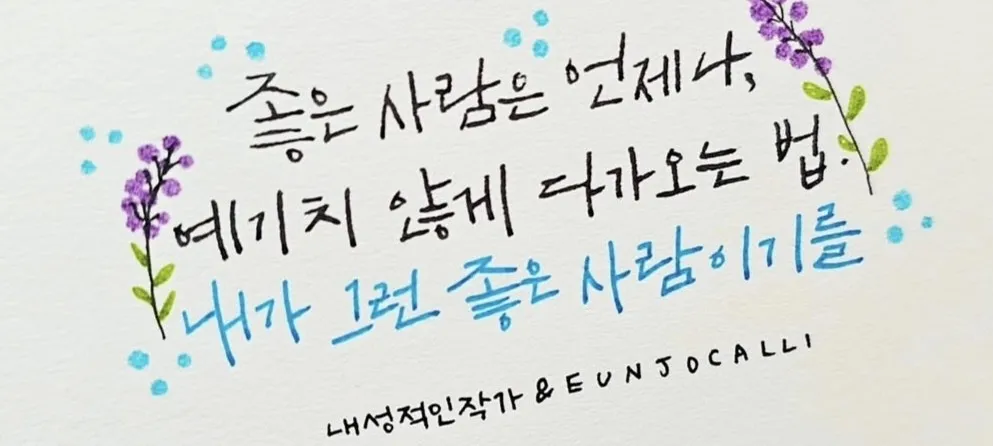 좋은 사람은 언제나,
예기치 않게 다가오는 법.
내가 그런 좋은 사람이기를
내성적인작가 & EUNJOCALLI